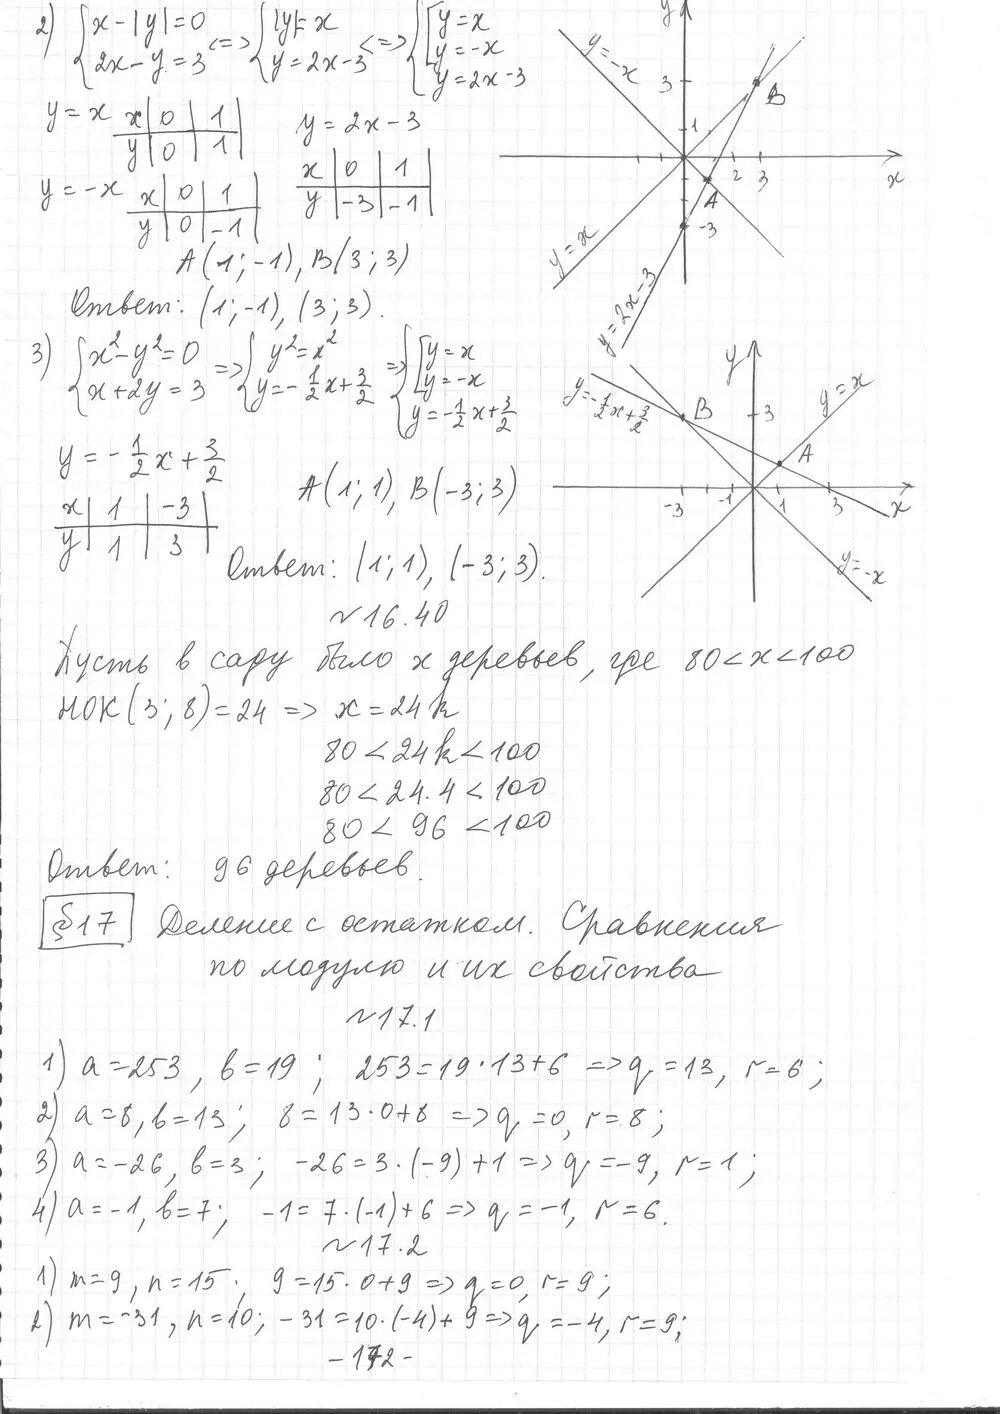 2) { x - |y| = 0 <=> { |y| = x <=> { [ y = x
2x - y = 3 y = 2x - 3 y = -x
y = 2x - 3
y = x x | 0 | 1 | y = 2x - 3
y | 0 | 1 | x | 0 | 1 |
y = -x x | 0 | 1 | y | -3 | -1 |
y | 0 | -1 |
A(1; -1), B(3; 3)
Ответ: (1; -1), (3; 3).
y
y = -x
3
B
1
2 3
x
A
-3
y = x
y = 2x - 3
3) { x² - y² = 0 => { y² = x² => { [ y = x
x + 2y = 3 y = -1/2 x + 3/2 y = -x
y = -1/2 x + 3/2
y = -1/2 x + 3/2
x | 1 | -3 | A(1; 1), B(-3; 3)
y | 1 | 3 |
Ответ: (1; 1), (-3; 3).
y
y = x
y = -1/2 x + 3/2
B
3
A
-3 -1 1 3 x
y = -x
~16.40
Пусть в саду было x деревьев, где 80 < x < 100
НОК(3; 8) = 24 => x = 24k
80 < 24k < 100
80 < 24·4 < 100
80 < 96 < 100
Ответ: 96 деревьев.
§17 Деление с остатком. Сравнения
по модулю и их свойства
~17.1
1) a = 253, b = 19; 253 = 19·13 + 6 => q = 13, r = 6;
2) a = 8, b = 13; 8 = 13·0 + 8 => q = 0, r = 8;
3) a = -26, b = 3; -26 = 3·(-9) + 1 => q = -9, r = 1;
4) a = -1, b = 7; -1 = 7·(-1) + 6 => q = -1, r = 6.
~17.2
1) m = 9, n = 15; 9 = 15·0 + 9 => q = 0, r = 9;
2) m = -31, n = 10; -31 = 10·(-4) + 9 => q = -4, r = 9;
-172-